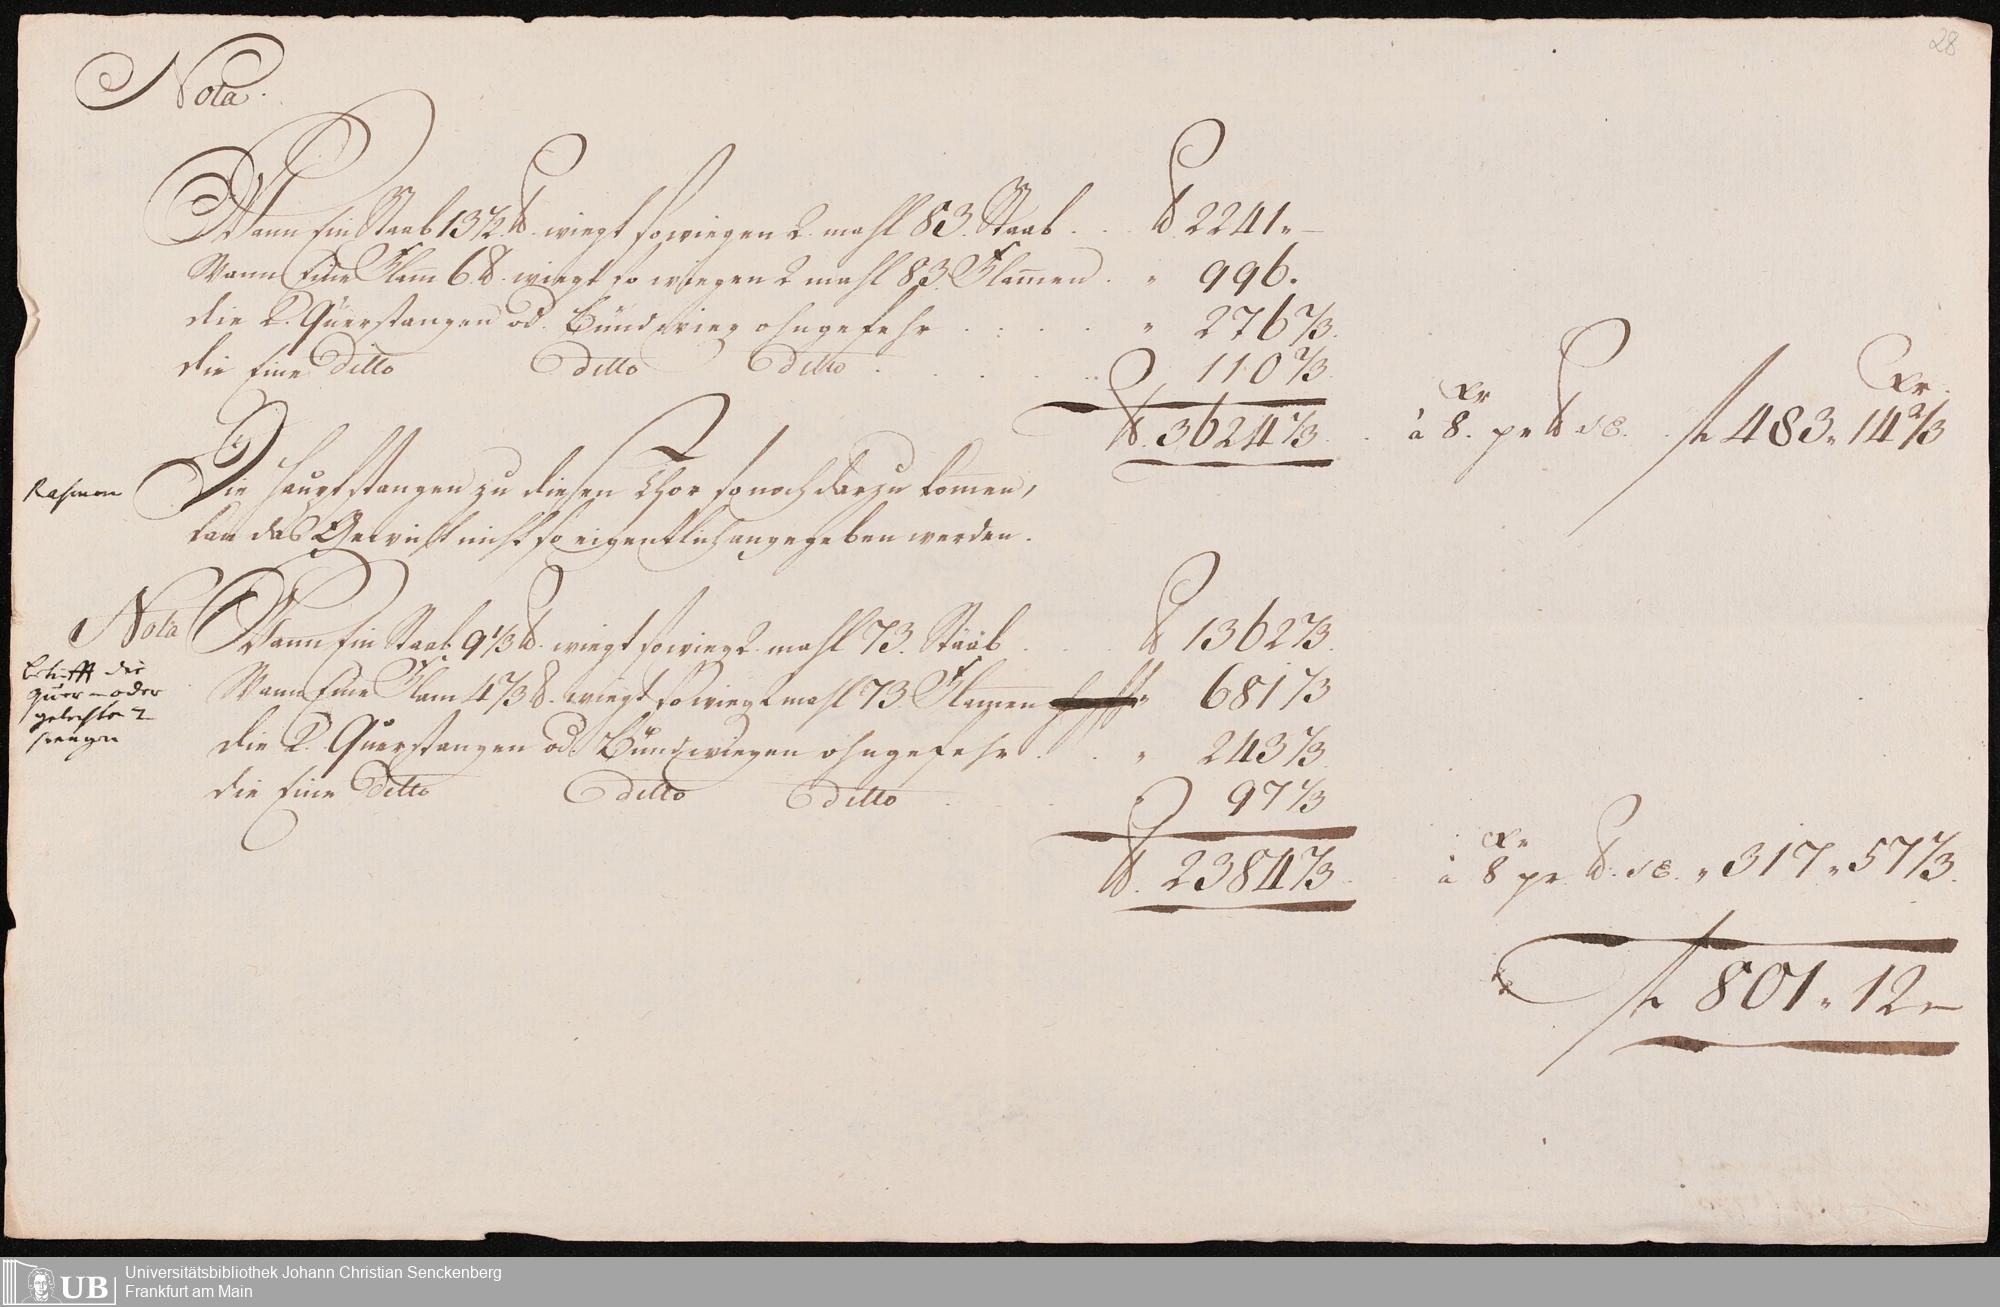 28
Nota.
Wann Ein Staab 13½ ℔. wiegt so wiegen 2. mahl 83. Staab . . ℔ 2241 „ —
Wann Eine Flam̄ 6. ℔. wiegt so wiegen 2 mahl 83. Flam̄en . „ 996.
die 2. Querstangen od. Bünd wieg ohngefehr . . . . „ 276⅔.
die Eine Ditto Ditto Ditto . . . . . 110⅔.
℔. 3624⅓. . . à 8. Xr pr ℔ . . fl 483 „ 14⅔ Xr.
Rahmen
Die Hauptstangen zu diesen Thor so noch darzu kom̄en,
kan das Gewicht nicht so eigentlich angegeben werden.
Nota
Wann Ein Staab 9⅓ ℔. wiegt so wieg 2. mahl 73. Stääb . . . ℔ 1362⅔.
betrifft die
quer - oder
stangen
Wann Eine Flam̄ 4⅔ ℔. wiegt so wieg 2 mahl 73. Flam̄en „ 681⅓
die 2. Querstangen od. Bünd wiegen ohngefehr . . „ 243⅓
die Eine Ditto Ditto Ditto . . . 97⅓
℔. 2384⅔ . . à 8 Xr pr ℔. „ 317 „ 57⅓.
fl 801 „ 12 „ —
UB
Universitätsbibliothek Johann Christian Senckenberg
Frankfurt am Main